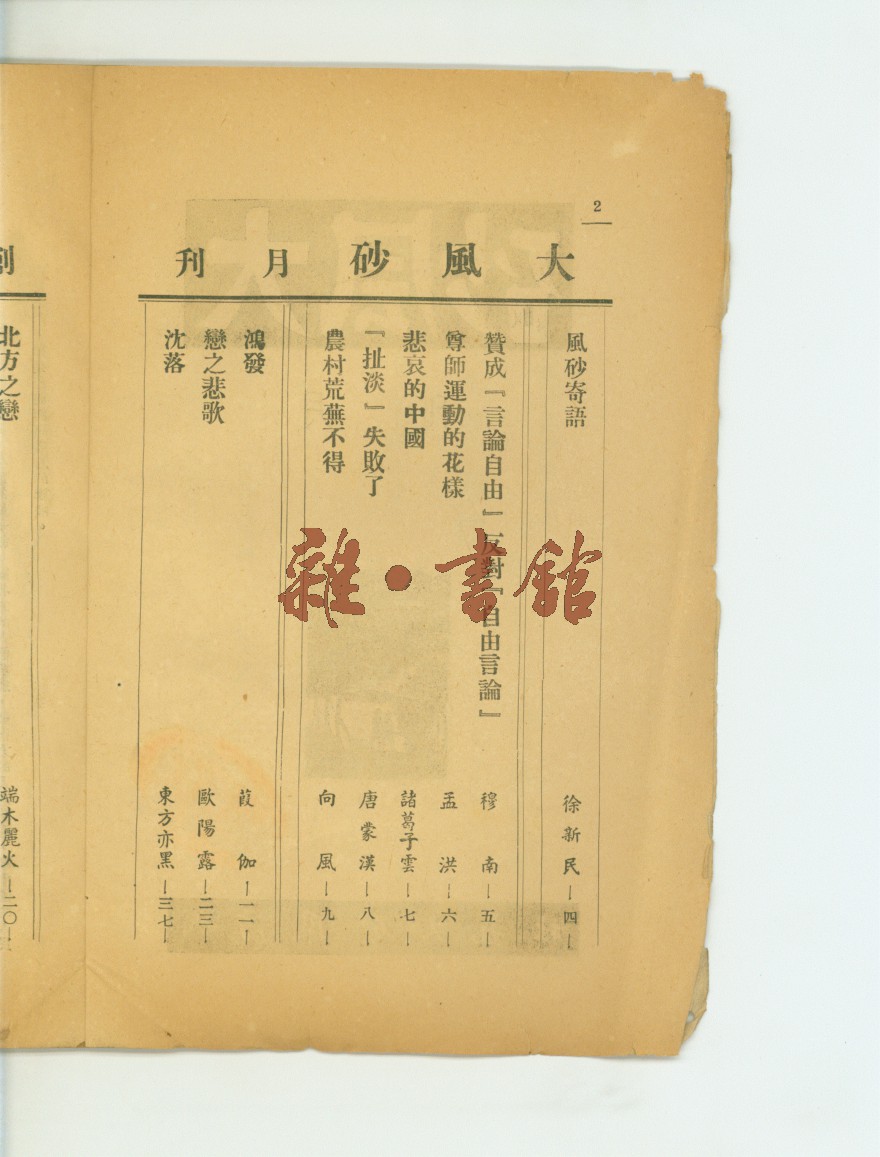 2
大風砂月刊
風砂寄語 徐新民 —四—
贊成『言論自由』反對『自由言論』 穆南—五—
尊師運動的花樣 孟洪—六—
悲哀的中國 諸葛子雲—七—
『扯淡』失敗了 唐蒙漢—八—
農村荒蕪不得 向風—九—
鴻發 葭伽—一一—
戀之悲歌 歐陽露—二三—
沈落 東方亦黑—三七—
創
北方之戀 端木麗火—二〇—
雜·書館